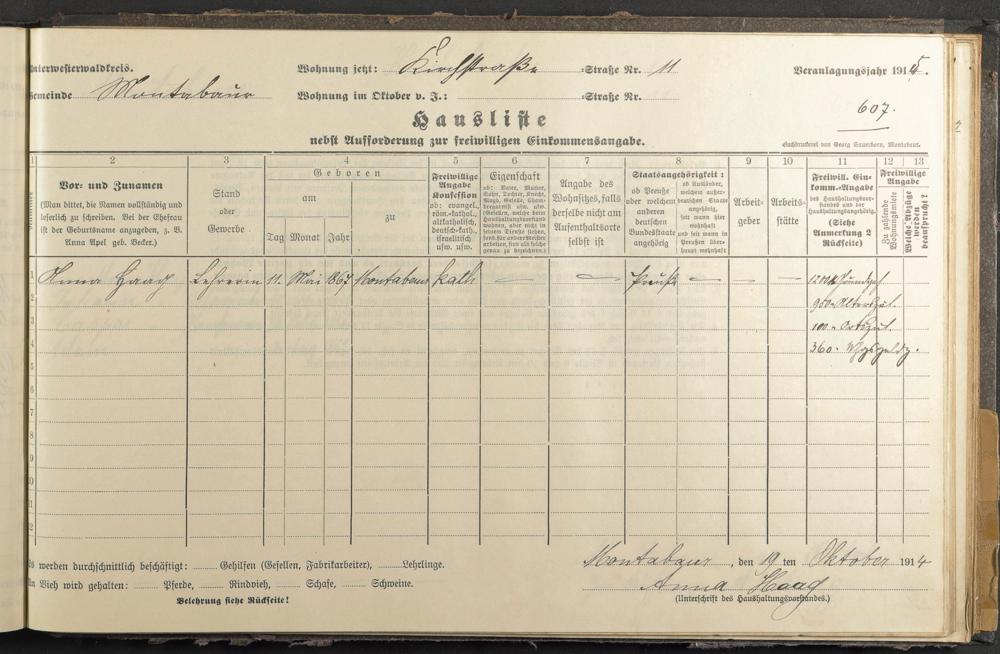 Unterwesterwaldkreis.
Wohnung jetzt: Kirchstraße -Straße Nr. 11
Veranlagungsjahr 1915.
Gemeinde Montabaur
Wohnung im Oktober v. J.: -Straße Nr.
607.
Hausliste
nebst Aufforderung zur freiwilligen Einkommensangabe.
Buchdruckerei von Georg Sauerborn, Montabaur.
1 2 3 4 5 6 7 8 9 10 11 12 13
Vor- und Zunamen
(Man bittet, die Namen vollständig und
leserlich zu schreiben. Bei der Ehefrau
ist der Geburtsname anzugeben, z. B.
Anna Apel geb. Becker.)
Stand
oder
Gewerbe
Geboren
am
zu
Tag Monat Jahr
Freiwillige
Angabe
Konfession
ob: evangel.
röm.-kathol.,
altkatholisch,
deutsch-kath.,
israelitisch
usw. usw.
Eigenschaft
ob: Vater, Mutter,
Sohn, Tochter, Knecht,
Magd, Geselle, Cham-
bregarnist usw.
(Gesellen, welche beim
Haushaltungsvorstand
wohnen, aber nicht in
seinem Dienste stehen,
sondern für andere Meister
arbeiten, sind als solche
genau zu bezeichnen.)
Angabe des
Wohnsitzes, falls
derselbe nicht am
Aufenthaltsorte
selbst ist
Staatsangehörigkeit:
ob Preuße
oder welchem
anderen
deutschen
Bundesstaate
angehörig
ob Ausländer,
welchem außer-
deutschen Staate
angehörig,
seit wann hier
wohnhaft
und seit wann in
Preußen über-
haupt wohnhaft
Arbeit-
geber
Arbeits-
stätte
Freiwill. Ein-
komm.-Angabe
des Haushaltungsvor-
standes und der
Haushaltungsangehörig.
(Siehe
Anmerkung 2
Rückseite)
Freiwillige
Angabe
Zu zahlende
Wohnungsmiete
Welche Abzüge
werden
beansprucht?
1 Anna Haag Lehrerin 11. Mai 1867 Montabaur kath — — Preuße — — — 1200 M Grundgeh
2 950 - Alterszul.
3 100 - Ortszul.
4 360 -
5
6
7
8
9
Es werden durchschnittlich beschäftigt: Gehilfen (Gesellen, Fabrikarbeiter), Lehrlinge.
An Vieh wird gehalten: Pferde, Rindvieh, Schafe, Schweine.
Belehrung siehe Rückseite!
Montabaur, den 19 ten Oktober 1914
Anna Haag
(Unterschrift des Haushaltungsvorstandes.)